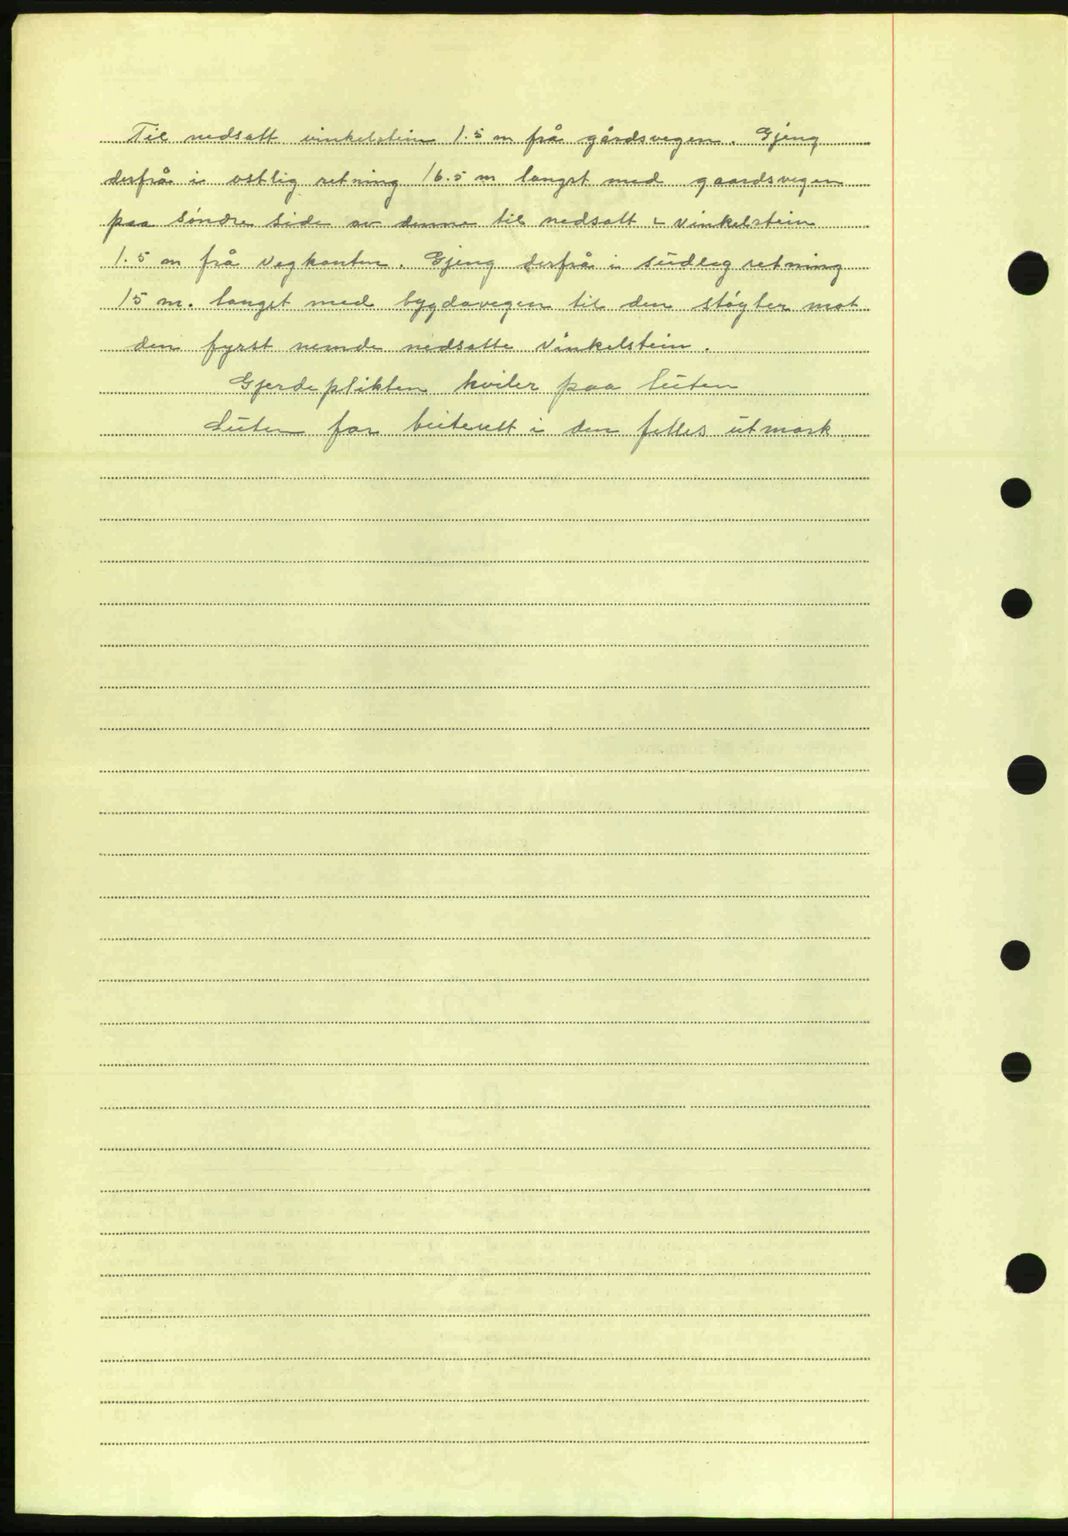 Til nedsatt vinkelstein 1.5 m frå gårdsvegen. Gjeng
derfrå i ostlig retning 16.5 m langst med gaardsvegen
paa söndre side av denne til nedsatt vinkelstein
1.5 m frå vegkanten. Gjeng derfrå i südleg retning
15 m. langst med bygdavegen til den støyter mot
den fyrst nemde nedsatte vinkelstein.
Gjerdeplikten kviler paa lüten
Lüten far beiterett i den felles ütmark